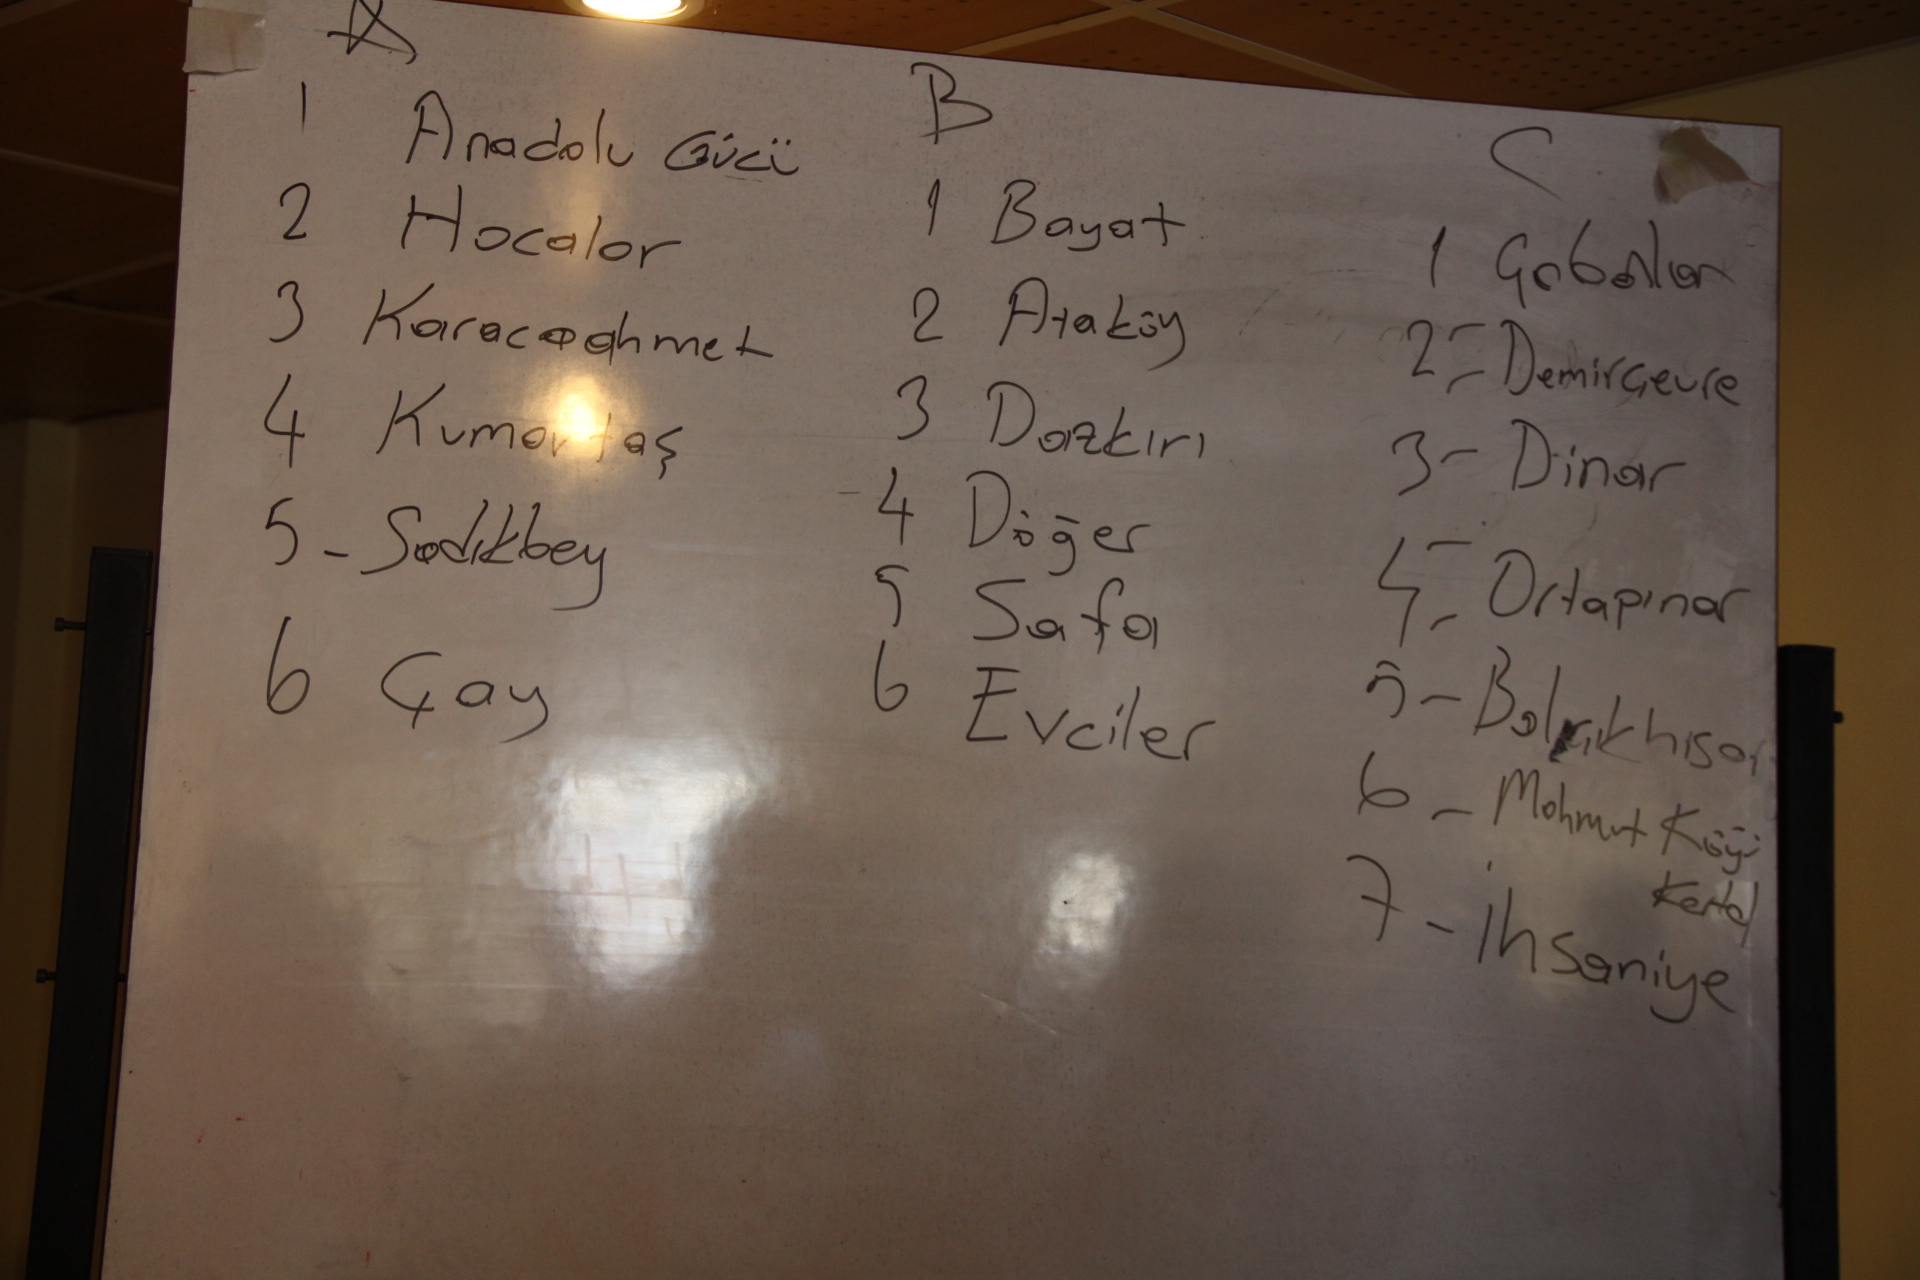 A
1 Anadolu Gücü
2 Hocalar
3 Karacaahmet
4 Kumartaş
5 - Sadıkbey
6 Çay
B
1 Bayat
2 Ataköy
3 Dazkırı
4 Döğer
5 Safa
6 Evciler
C
1 Çobanlar
2 - Demirçevre
3 - Dinar
4 - Ortapınar
5 - Balçıkhisar
6 - Mahmut Köyü
Kartal
7 - İhsaniye